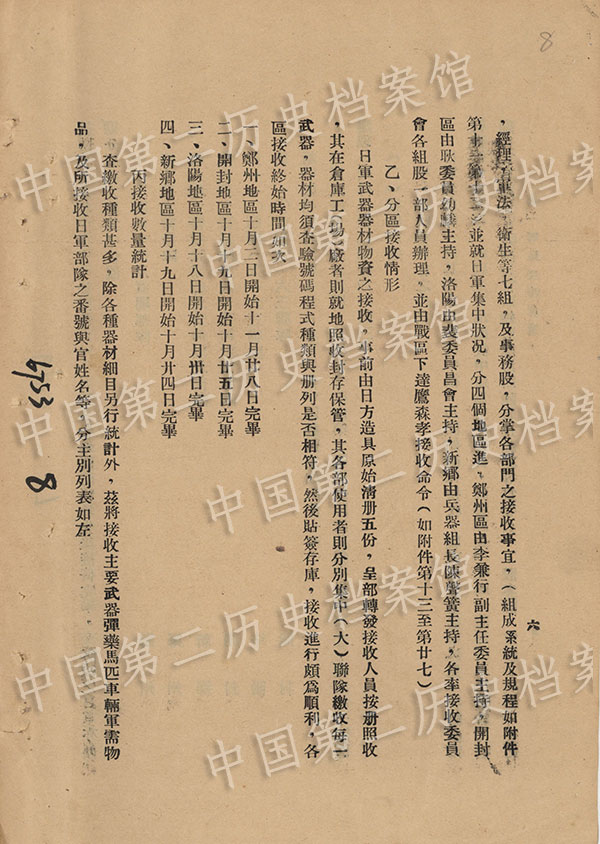 8
六
，經理、軍法、衛生等七組，及事務股，分掌各部門之接收事宜，（組成系統及規程如附件
第十 並就日軍集中狀況，分四個地區進 鄭州區由李兼行副主任委員主持，開封
區由耿委員幼麟主持，洛陽由裴委員昌會主持，新鄉由兵器組長陳 簧主持，各率接收委員
會各組股一部人員辦理，並由戰區下達鷹森孝接收命令（如附件第十三至第廿七）
乙、分區接收情形
日軍武器器材物資之接收，事前由日方造具原始清册五份，呈部轉發接收人員按册照收
，其在倉庫工（場）廠者則就地照收封存保管，其各部使用者則分別集中（大）聯隊繳收每一
武器，器材均須查驗號碼程式種類與册列是否相符，然後貼簽存庫，接收進行頗爲順利，各
區接收終始時間如次
一、鄭州地區十月二日開始十一月廿八日完畢
二、開封地區十月十九日開始十月廿五日完畢
三、洛陽地區十月十八日開始十月卅日完畢
四、新鄉地區十月十九日開始十月廿四日完畢
丙接收數量統計
查繳收種類甚多，除各種器材細目另行統計外，茲將接收主要武器彈藥馬匹車輛軍需物
品，及所接收日軍部隊之番號與官姓名等，分主別列表如左
8
中国第二历史档案馆
中国第二历史档案馆
中国第二历史档案馆
中国第二历史档案馆